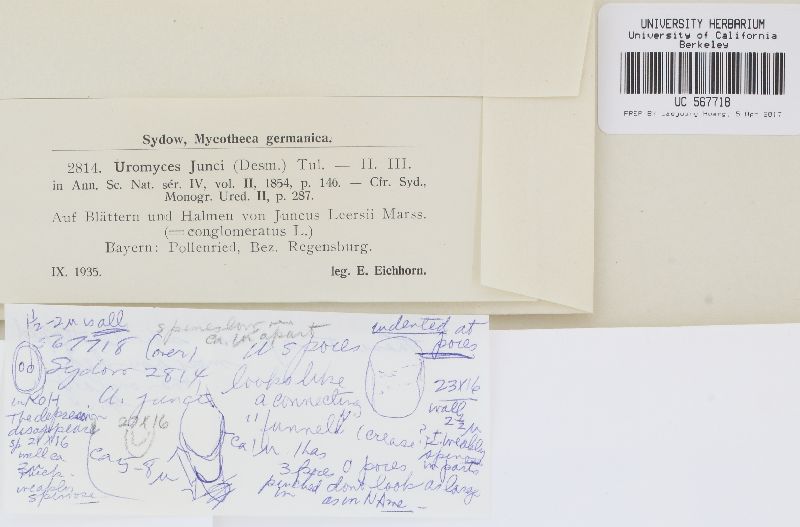 UNIVERSITY HERBARIUM
University of California
Berkeley
UC 567718
Sydow, Mycotheca germanica.
2814. Uromyces Junci (Desm.) Tul. — II. III.
in Ann. Sc. Nat. sér. IV, vol. II, 1854, p. 146. — Cfr. Syd.,
Monogr. Ured. II, p. 287.
Auf Blättern und Halmen von Juncus Leersii Marss.
(= conglomeratus L.)
Bayern: Pollenried, Bez. Regensburg.
IX. 1935. leg. E. Eichhorn.
1½-2µ wall
567718 (over)
Sydow 2814
U. junci
in KOH
The depression
disappears
sp 21X16
wall ca
thick.
weakly
spinose
20X16
ca 5-8µ
spines
ca. 1µ apart
U spores
looks like
a connecting
"funnell" (crease?)
ca 1µ 1 has
3 pores
pinched in
dont look as large
as in N Ame
indented at
pores
23X16
wall
2½µ
weakly
spinose
in parts